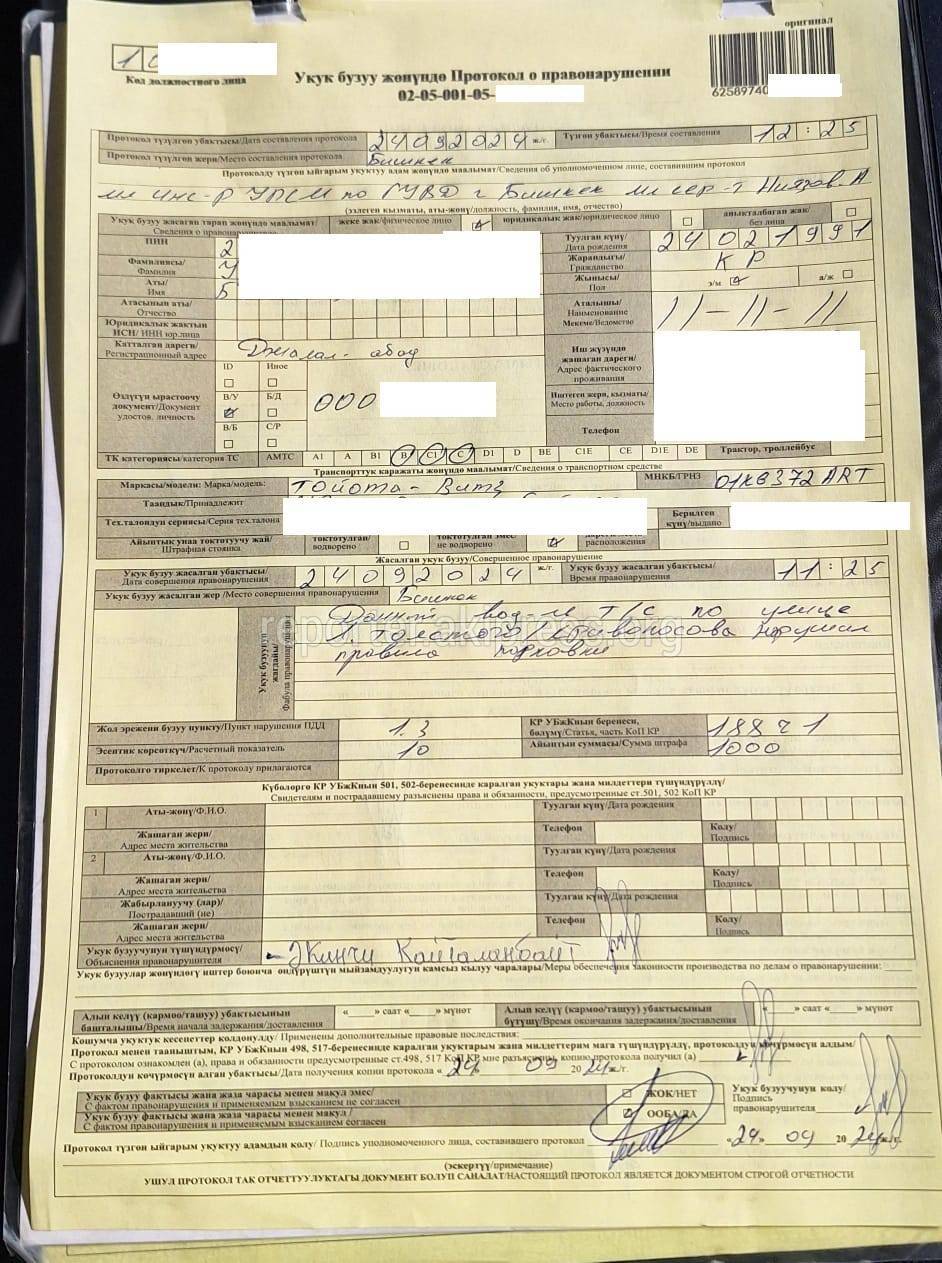 оригинал
1
Код должностного лица
Укук бузуу жөнүндө Протокол о правонарушении
02-05-001-05-
62589740
Протокол түзүлгөн убактысы/Дата составления протокола 24092024 ж/г. Түзгөн убактысы/Время составления 12:25
Протокол түзүлгөн жери/Место составления протокола Бишкек
Протоколду түзгөн ыйгарым укуктуу адам жөнүндө маалымат/Сведения об уполномоченном лице, составившим протокол
мл инс-р УПСМ по ГУВД г Бишкек мл сер-т Ниязов А
(ээлеген кызматы, аты-жөнү/должность, фамилия, имя, отчество)
Укук бузуу жасаган тарап жөнүндө маалымат/ Сведения о жеке жак/физическое лицо юридикалык жак/юридическое лицо аныкталбаган жак/ без лица
ПИН 2 Туулган күнү/ Дата рождения 24021991
Фамилиясы/ Фамилия У Жарандыгы/ Гражданство КР
Аты/ Имя Б Жынысы/ Пол э/м а/ж
Атасынын аты/ Отчество Аталышы/ Наименование Мекеме/Ведомство //-//-//
Юридикалык жактын ИСН/ ИНН юр.лица
Катталган дареги/ Регистрационный адрес Джалал-абад
Иш жүзүндө жашаган дареги/ Адрес фактического проживания
Өздүгүн ырастоочу документ/Документ удостов. личность ID Иное В/У Б/Д В/Б С/Р 000
Иштеген жери, кызматы/ Место работы, должность
Телефон
ТК категориясы/категория ТС АМТС A1 A B1 B C1 C D1 D BE C1E CE D1E DE Трактор, троллейбус
Транспорттук каражаты жөнүндө маалымат/Сведения о транспортном средстве
Маркасы/модели: Марка/модель: Тойота-Витц МНКБ/ГРНЗ 01KG372ART
Таандык/Принадлежит
Тех.талондун сериясы/Серия тех.талона Берилген күнү/выдано
Айыптык унаа токтотуучу жай/ Штрафная стоянка токтотулган/ водворено токтотулган эмес не водворено расположения
Жасалган укук бузуу/Совершенное правонарушение
Укук бузуу жасалган убактысы/ Дата совершения правонарушения 24092024 ж/г. Укук бузуу жасалган убактысы/ Время правонарушения 11:25
Укук бузуу жасалган жер /Место совершения правонарушения Бишкек
Данный вод-ль Т/С по улице
Л. Толстого/Кривоносова нарушил
правила парковки
reporter.akipress.org
Жол эрежени бузуу пункту/Пункт нарушения ПДД 1.3 КР УБжКнын беренеси, бөлүмү/Статья, часть КоП КР 188 ч 1
Эсептик көрсөткүч/Расчетный показатель 10 Айыптын суммасы/Сумма штрафа 1000
Протоколго тиркелет/К протоколу прилагаются
Күбөлөргө КР УБжКнын 501, 502-беренесинде каралган укуктары жана милдеттери түшүндүрүлдү/
Свидетелям и пострадавшему разъяснены права и обязанности, предусмотренные ст.501, 502 КоП КР
1 Аты-жөнү/Ф.И.О. Туулган күнү/Дата рождения
Жашаган жери/ Адрес места жительства Телефон Колу/ Подпись
2 Аты-жөнү/Ф.И.О. Туулган күнү/Дата рождения
Жашаган жери/ Адрес места жительства Телефон Колу/ Подпись
Жабырлануучу (лар)/ Пострадавший (не) Туулган күнү/Дата рождения
Жашаган жери/ Адрес места жительства Телефон Колу/ Подпись
Укук бузуучунун түшүндүрмөсү/ Объяснения правонарушителя Экинчи Кайталанбайт
Укук бузуулар жөнүндөгү иштер боюнча өндүрүштүн мыйзамдуулугун камсыз кылуу чаралары/Меры обеспечения законности производства по делам о правонарушении:
Алып келүү (кармоо/ташуу) убактысынын башталышы/Время начала задержания/доставления «___» саат «___» мүнөт Алып келүү (кармоо/ташуу) убактысынын бүтүшү/Время окончания задержания/доставления «___» саат «___» мүнөт
Кошумча укуктук кесепеттер колдонулду/ Применены дополнительные правовые последствия:
Протокол менен тааныштым, КР УБжКнын 498, 517-беренесинде каралган укуктарым жана милдеттерим мага түшүндүрүлдү, протоколдун көчүрмөсүн алдым/
С протоколом ознакомлен (а), права и обязанности предусмотренные ст.498, 517 КоП КР мне разъяснены, копию протокола получил (а)
Протоколдун көчүрмөсүн алган убактысы/Дата получения копии протокола «24» 09 2024 ж/г.
Укук бузуу фактысы жана жаза чарасы менен макул эмес/ С фактом правонарушения и применяемым взысканием не согласен ЖОК/НЕТ
Укук бузуу фактысы жана жаза чарасы менен макул / С фактом правонарушения и применяемым взысканием согласен ООБА/ДА
Укук бузуучунун колу/ Подпись правонарушителя
Протокол түзгөн ыйгарым укуктуу адамдын колу/ Подпись уполномоченного лица, составившего протокол «24» 09 2024 ж/г.
(эскертүү/примечание)
УШУЛ ПРОТОКОЛ ТАК ОТЧЕТТУУЛУКТАГЫ ДОКУМЕНТ БОЛУП САНАЛАТ/НАСТОЯЩИЙ ПРОТОКОЛ ЯВЛЯЕТСЯ ДОКУМЕНТОМ СТРОГОЙ ОТЧЕТНОСТИ